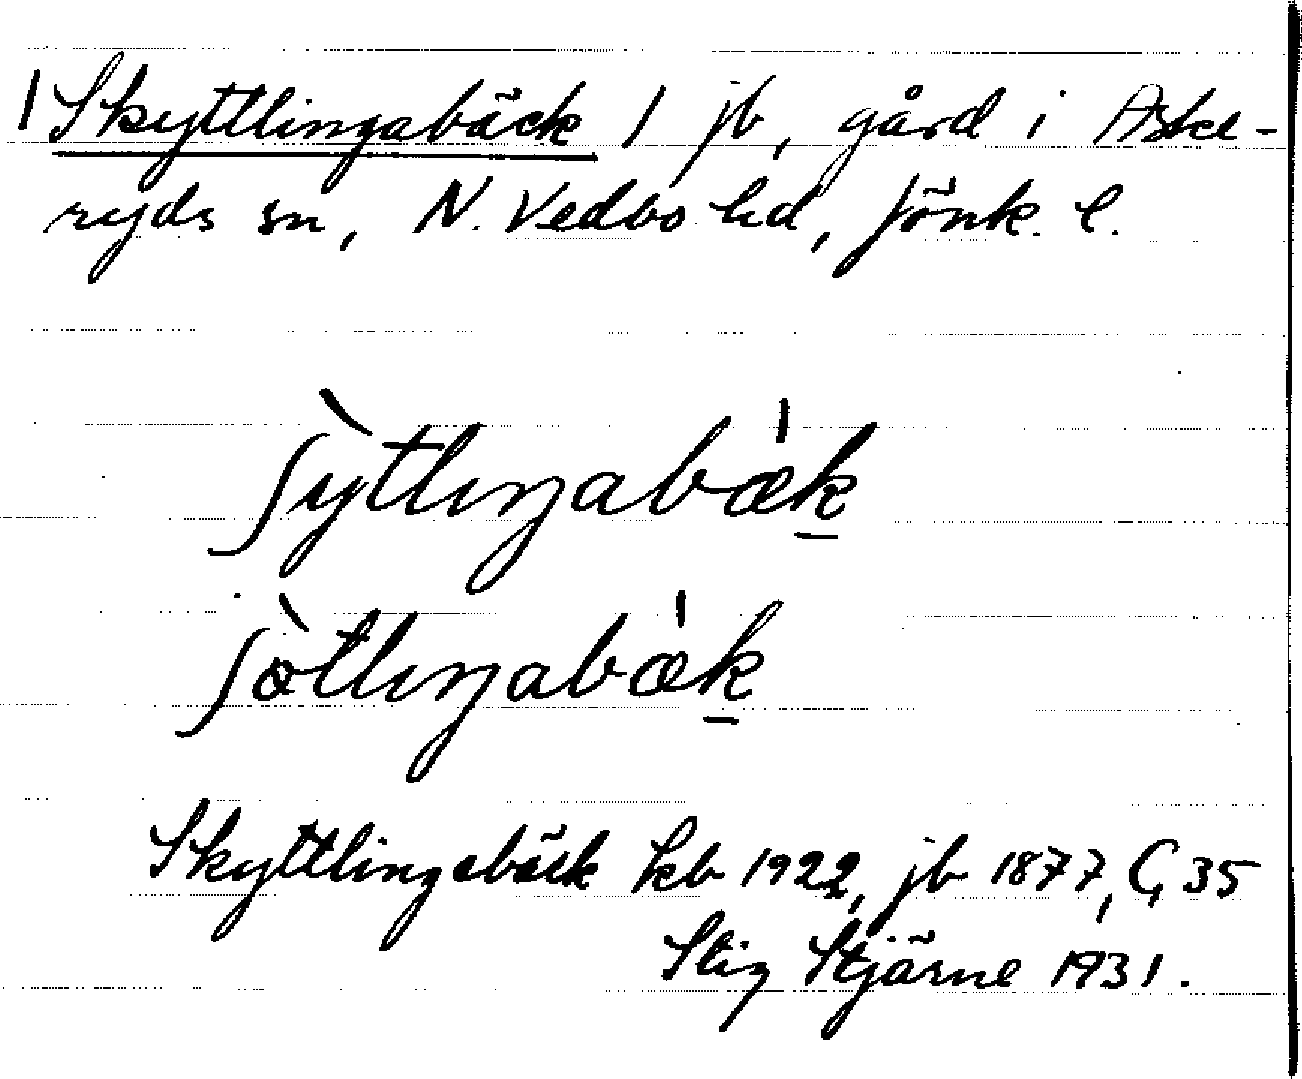 | Skyttlingabäck / jb, gård i Aske-
ryds sn, N. Vedbo hd, Jönk. l.
ʃỳtlıŋabæ̍k̲
ʃòtlıŋabæ̍k̲
Skyttlingabäck kb 1922, jb 1877, G, 35
Stig Stjärne 1931.